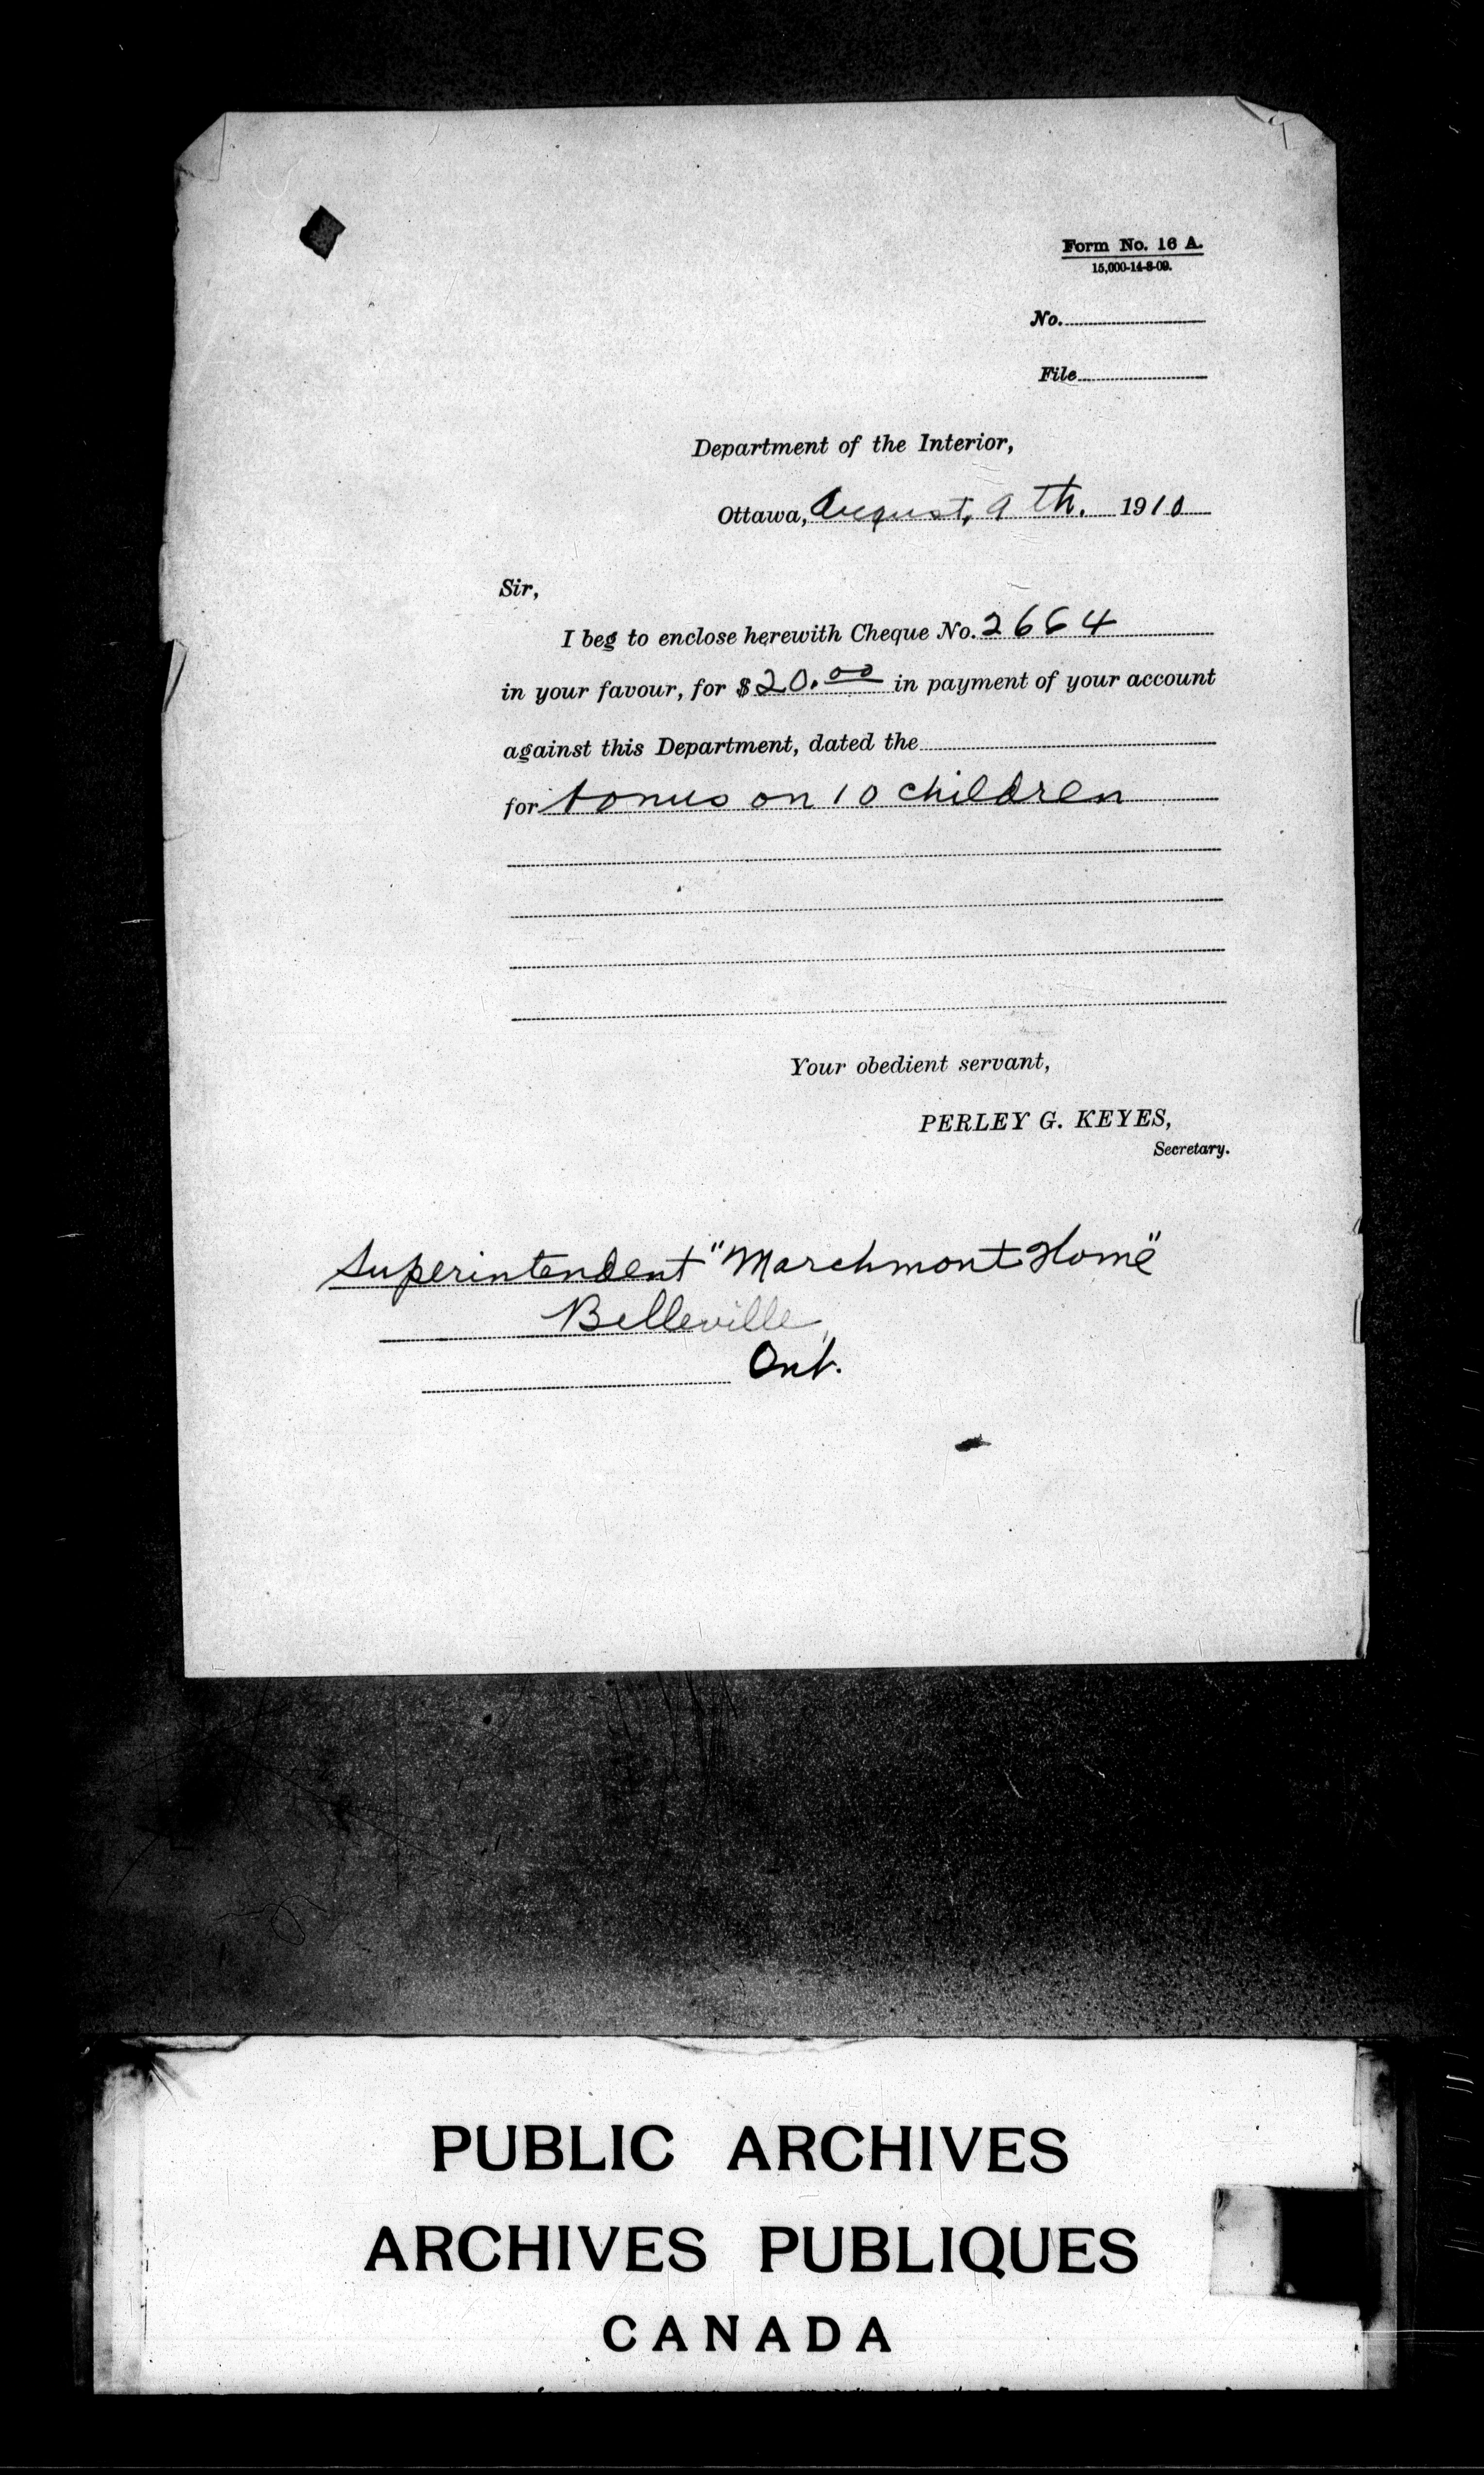 Form No. 16 A.
15,000-14-8-09.
No.
File
Department of the Interior,
Ottawa, August, 9th. 1910
Sir,
I beg to enclose herewith Cheque No. 2664
in your favour, for $20.00 in payment of your account
against this Department, dated the
for bonus on 10 children
Your obedient servant,
PERLEY G. KEYES,
Secretary.
Superintendent "Marchmont Home"
Belleville,
Ont.
PUBLIC ARCHIVES
ARCHIVES PUBLIQUES
CANADA